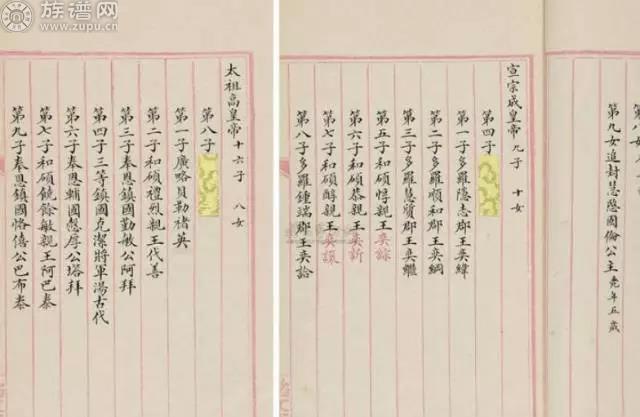 族谱网
www.zupu.cn
太祖高皇帝 十六子 八女
第八子
第一子廣略貝勒褚英
第二子和碩禮烈親王代善
第三子奉恩鎮國勤敏公阿拜
第四子三等鎮國克潔將軍湯古代
第六子奉恩輔國愨厚公塔拜
第七子和碩饒餘敏親王阿巴泰
第九子奉恩鎮國恪僖公巴布泰
第九女追封慧愍固倫公主 堯年五歲
宣宗成皇帝 九子 十女
第四子
第一子多羅隱志郡王奕緯
第二子多羅順和郡王奕綱
第三子多羅慧質郡王奕繼
第五子和碩惇親王奕誴
第六子和碩恭親王奕訢
第七子和碩醇親王奕譞
第八子多羅鍾端郡王奕詥